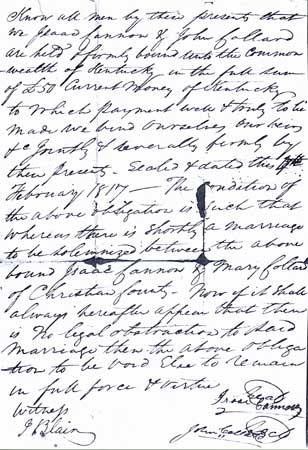 Know all men by these presents that
we Isaac Cannon & John Collard
are held & firmly bound unto the Common
wealth of Kentucky in the full sum
of £50 Current Money of Kentucky
to Which payment well & truly to be
Made we bind Ourselves Our heirs
&c Jointly & severally firmly by
these presents - Sealed & dated this
February 1817 — The Condition of
the above obligation is Such that
Whereas there is Shortly a marriage
to be solemnized between the above
bound Isaac Cannon & Mary Collard
of Christian County Now if it Shall
always hereafter appear that there
is No legal obstruction to Said
Marriage then the above Obliga
tion to be Void Else to remain
in full force & virtue
Witness
J Blain
Isaac Cannon
John Collard